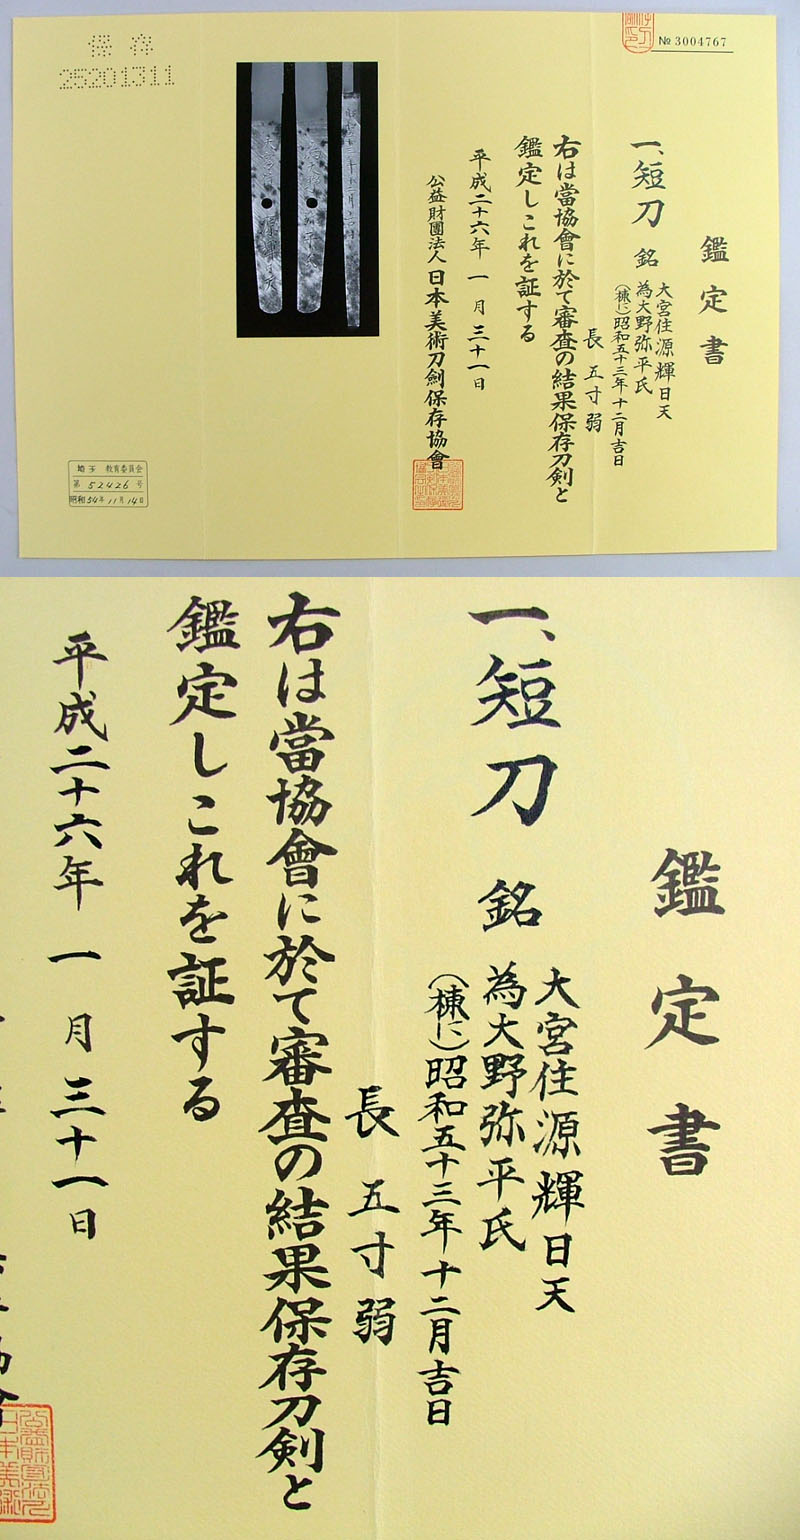 № 3004767
鑑定書
一、短刀 銘 大宮住源輝日天
為大野弥平氏
(棟に)昭和五十三年十二月吉日
長五寸弱
右は當協會に於て審査の結果保存刀剣と
鑑定しこれを証する
平成二十六年一月三十一日
公益財團法人日本美術刀剣保存協會
保存
25201311
埼玉 教育委員会
第 52426 号
昭和54年11月14日
鑑定書
一、短刀 銘 大宮住源輝日天
為大野弥平氏
(棟に)昭和五十三年十二月吉日
長五寸弱
右は當協會に於て審査の結果保存刀剣と
鑑定しこれを証する
平成二十六年一月三十一日